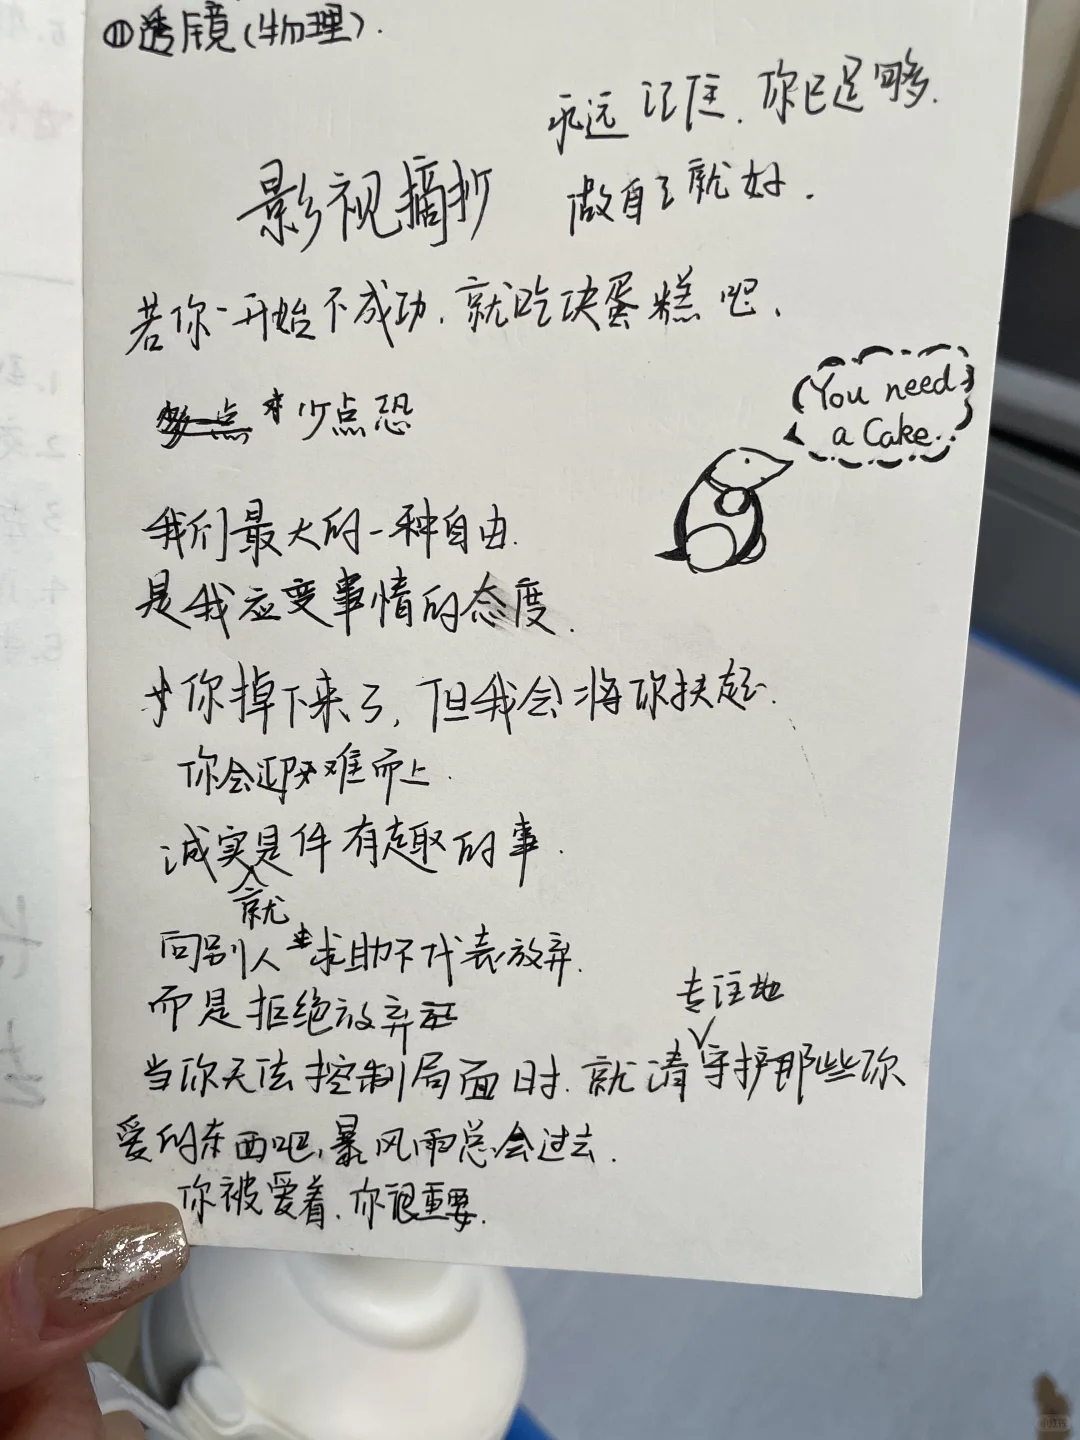 ⑪透镜(物理).
永远记住.你已足够.
做自己就好.
影视摘抄
若你一开始不成功.就吃块蛋糕吧.
You need
a Cake.
多点 少点恐
我们最大的一种自由.
是我应变事情的态度.
你掉下来了,但我会将你扶起.
你会迎难而上.
诚实就是件有趣的事.
向别人求助不代表放弃.
而是拒绝放弃
当你无法控制局面时.就请专注地守护那些你
爱的东西吧,暴风雨总会过去.
你被爱着.你很重要.
小红书